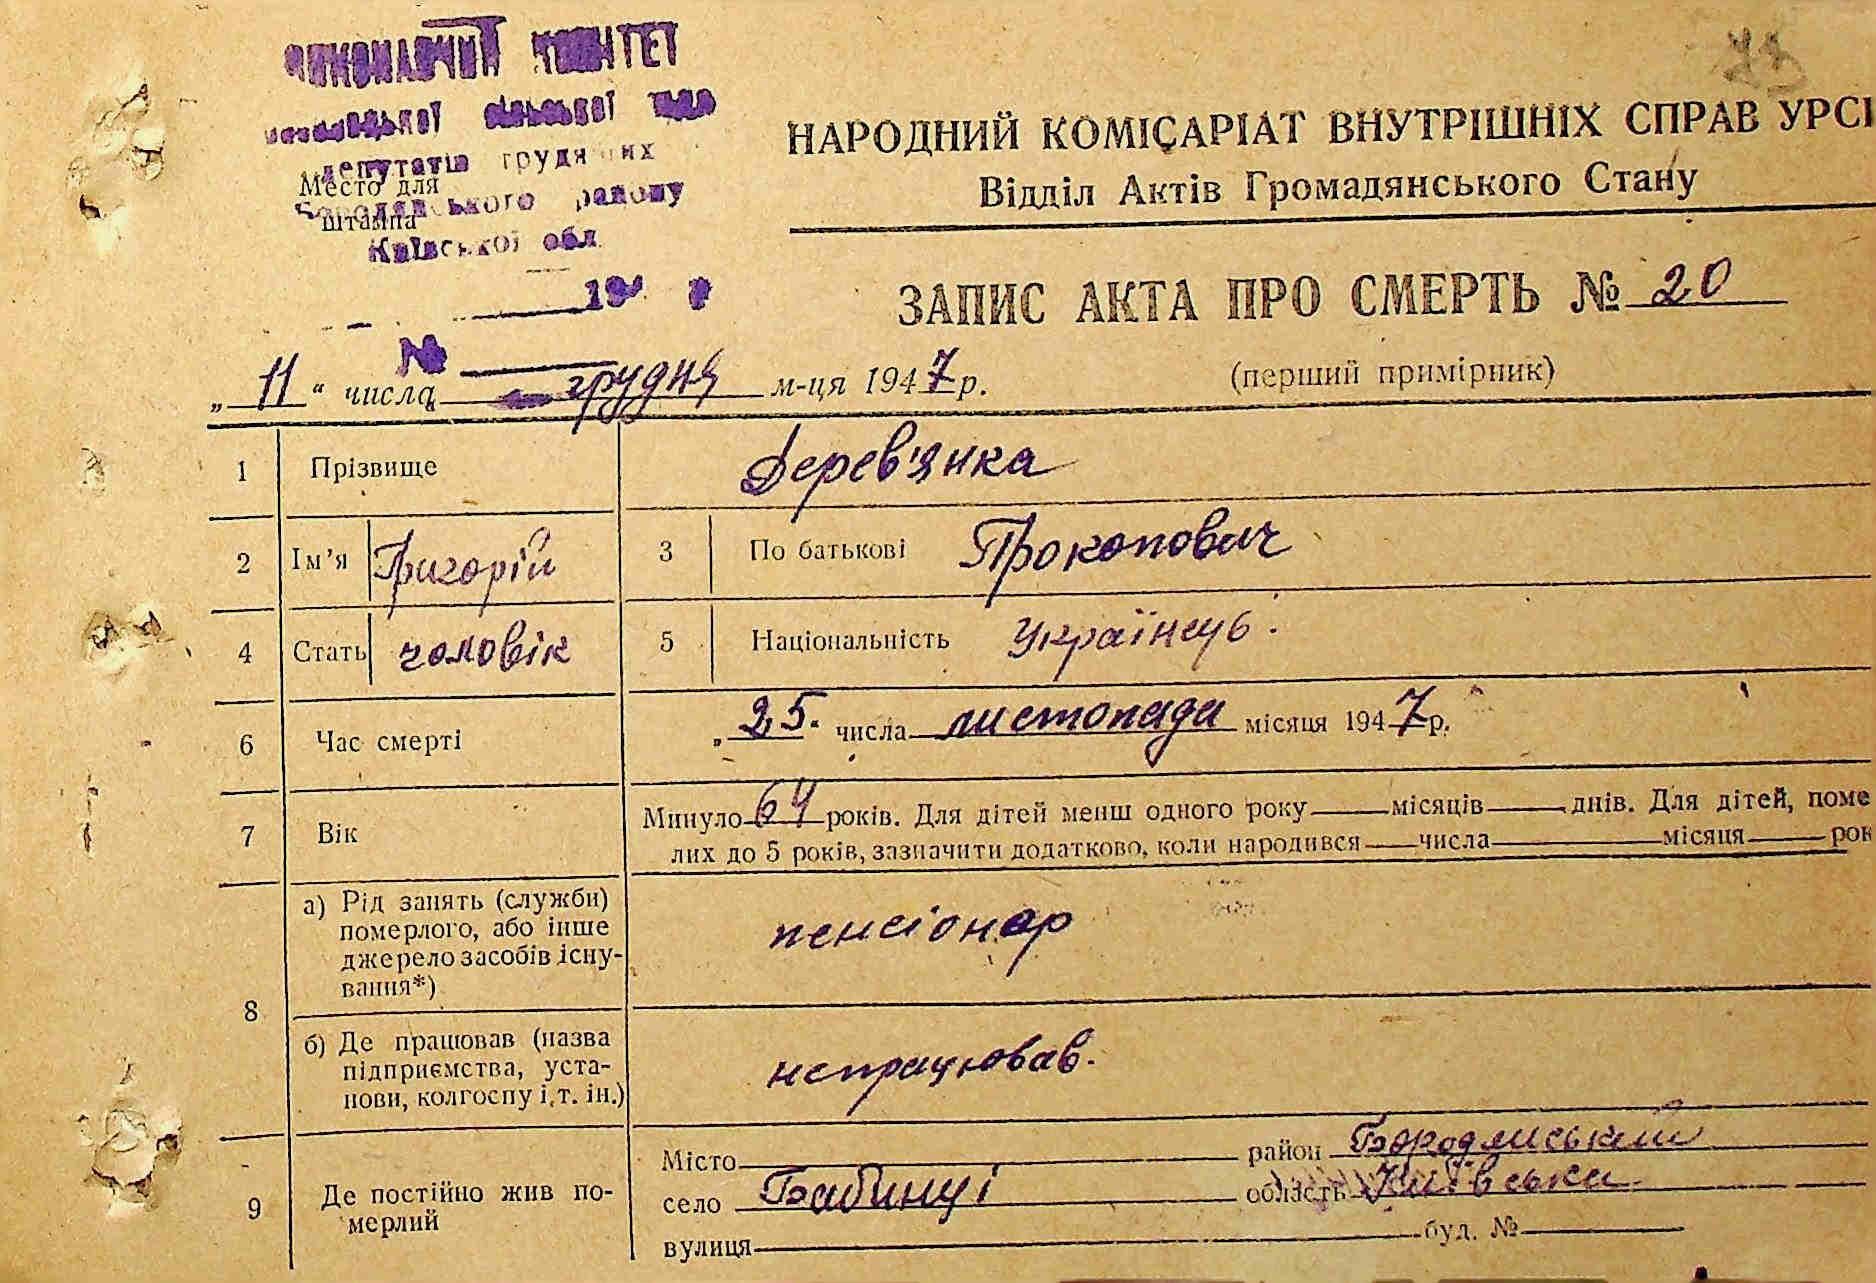 ВИКОНАВЧИЙ КОМІТЕТ
сільської
депутатів трудящих
Бородянського району
Київської обл.
Место для
штампа
194 р
№
НАРОДНИЙ КОМІСАРІАТ ВНУТРІШНІХ СПРАВ УРСІ
Відділ Актів Громадянського Стану
ЗАПИС АКТА ПРО СМЕРТЬ № 20
(перший примірник)
„11“ числа грудня м-ця 1947 р.
1 Прізвище Дерев'янка
2 Ім'я Григорій 3 По батькові Прокопович
4 Стать чоловік 5 Національність Українець.
6 Час смерті „25. числа листопада місяця 1947 р.
7 Вік Минуло 64 років. Для дітей менш одного року місяців днів. Для дітей, поме
лих до 5 років, зазначити додатково, коли народився числа місяця рок
8 а) Рід занять (служби)
померлого, або інше
джерело засобів існу-
вання*)
пенсіонер
б) Де працював (назва
підприємства, уста-
нови, колгоспу і т. ін.)
непрацював.
9 Де постійно жив по-
мерлий
Місто район Бородянський
село Бабинці область Київська
вулиця буд. №